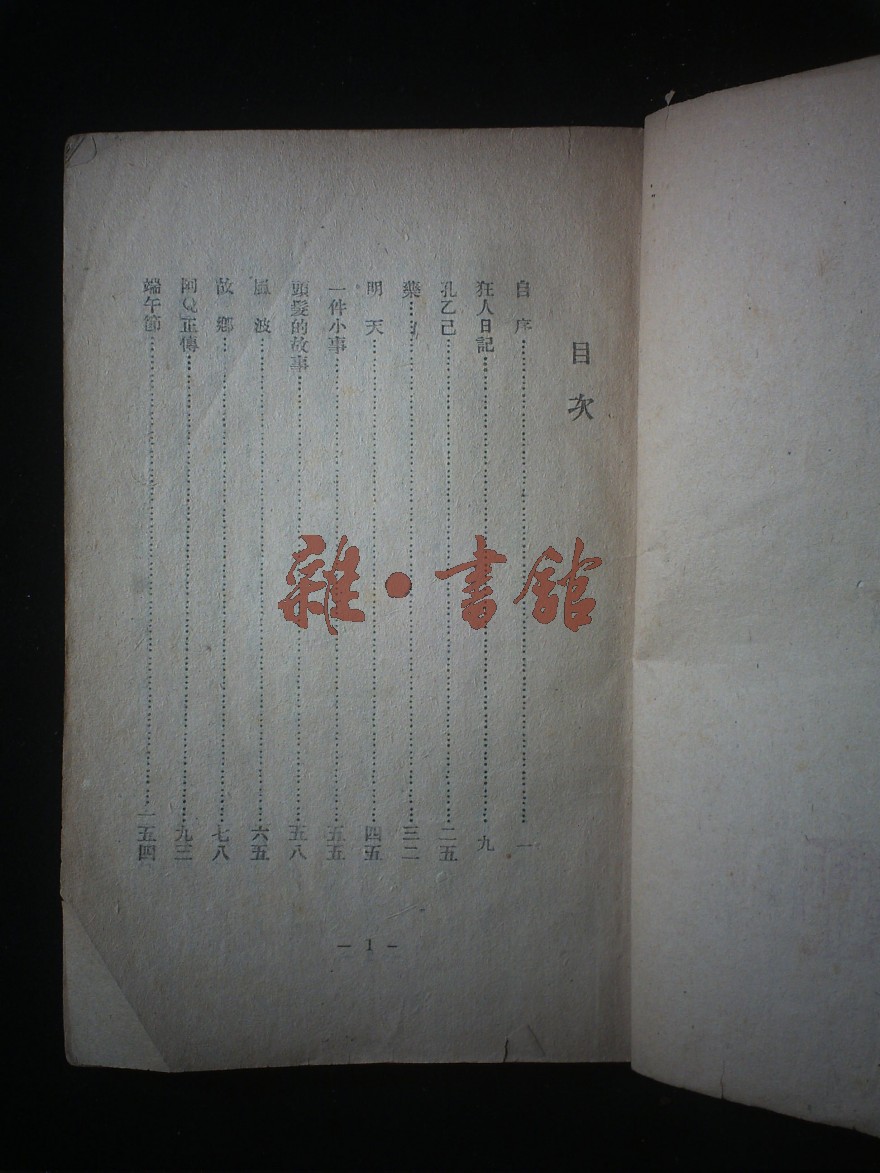 目次
自序……一
狂人日記……九
孔乙己……二五
藥……三二
明天……四五
一件小事……五五
頭髮的故事……五八
風波……六五
故鄉……七八
阿Q正傳……九三
端午節……一五四
— 1 —
雜·書館